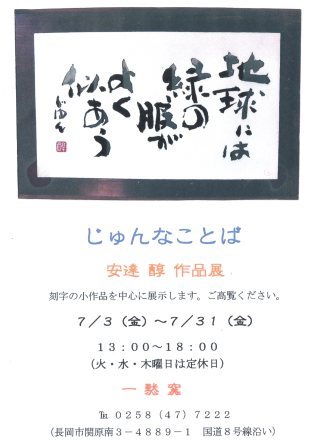 地球には
緑の
服が
よく
似あう
じゅん
じゅんなことば
安達 醇 作品展
刻字の小作品を中心に展示します。ご高覧ください。
7/3（金）～7/31（金）
１３：００～１８：００
（火・水・木曜日は定休日）
一慭窯
℡ ０２５８（４７）７２２２
（長岡市関原南３－４８８９－１　国道８号線沿い）